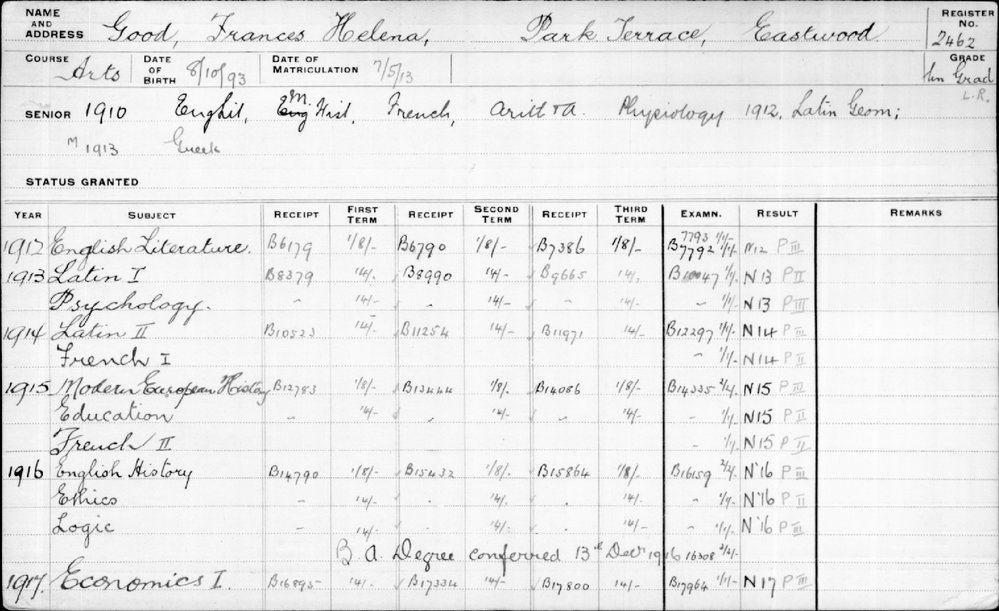 NAME AND ADDRESS Good, Frances Helena, Park Terrace, Eastwood REGISTER No. 2462
COURSE Arts DATE OF BIRTH 8/10/93 DATE OF MATRICULATION 7/5/13 GRADE Un Grad
L.R.
SENIOR 1910 Eng Lit, M. Hist, French, Arith & A. Physiology 1912, Latin Geom;
M 1913 Greek
STATUS GRANTED
YEAR SUBJECT RECEIPT FIRST TERM RECEIPT SECOND TERM RECEIPT THIRD TERM EXAMN. RESULT REMARKS
7793 1/1/-
1912 English Literature. B6179 1/8/- B6790 1/8/- B7386 1/8/- B7792 1/1/- N12 P III
1913 Latin I B8379 14/- B8990 14/- B9665 14/- 1/1/- N13 P II
Psychology. " 14/- " 14/- " 14/- " 1/1/- N13 P III
1914 Latin II B10523 14/- B11254 14/- B11971 14/- B12297 1/1/- N14 P III
French I " 1/1/- N14 P II
1915 Modern European History B12783 1/8/- B13444 1/8/- B14086 1/8/- B14335 2/2/- N15 P III
Education " 14/- " 14/- " 14/- " 1/1/- N15 P II
French II " 1/1/- N15 P II
1916 English History B14790 1/8/- B15432 1/8/- B15864 1/8/- B16159 2/2/- N'16 P III
Ethics " 14/- 14/- 14/- " 1/1/- N'16 P II
Logic " 14/- 14/- 14/- " 1/1/- N'16 P III
B.A. Degree conferred 13th Decr 1916 16308
1917. Economics I. B16895 14/- B17334 14/- B17800 14/- B17964 1/1/- N17 P III